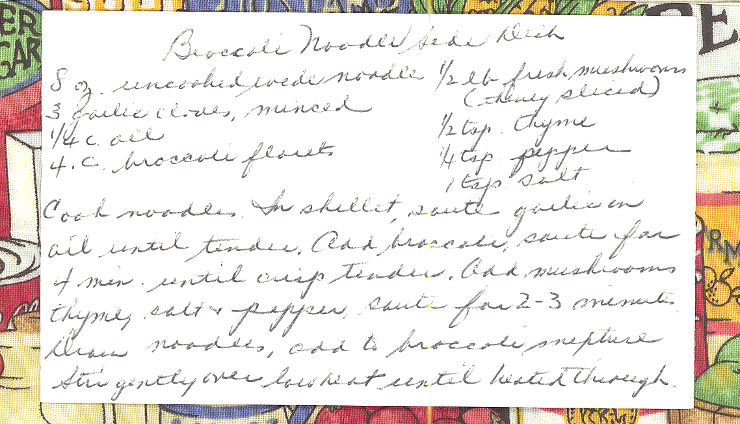 Broccoli Noodles Side Dish
8 oz. uncooked wide noodle
3 garlic cloves, minced
1/4 c. oil
4. c. broccoli florets
1/2 lb fresh mushrooms
(thinly sliced)
1/2 tsp. thyme
1/4 tsp pepper
1 tsp salt
Cook noodles. In skillet, saute garlic in
oil until tender. Add broccoli, saute for
4 min. until crisp tender. Add mushrooms
thyme, salt + pepper, saute for 2-3 minute
Drain noodles, add to broccoli mixture
Stir gently over low heat until heated through.
ER
GAR
E
RM